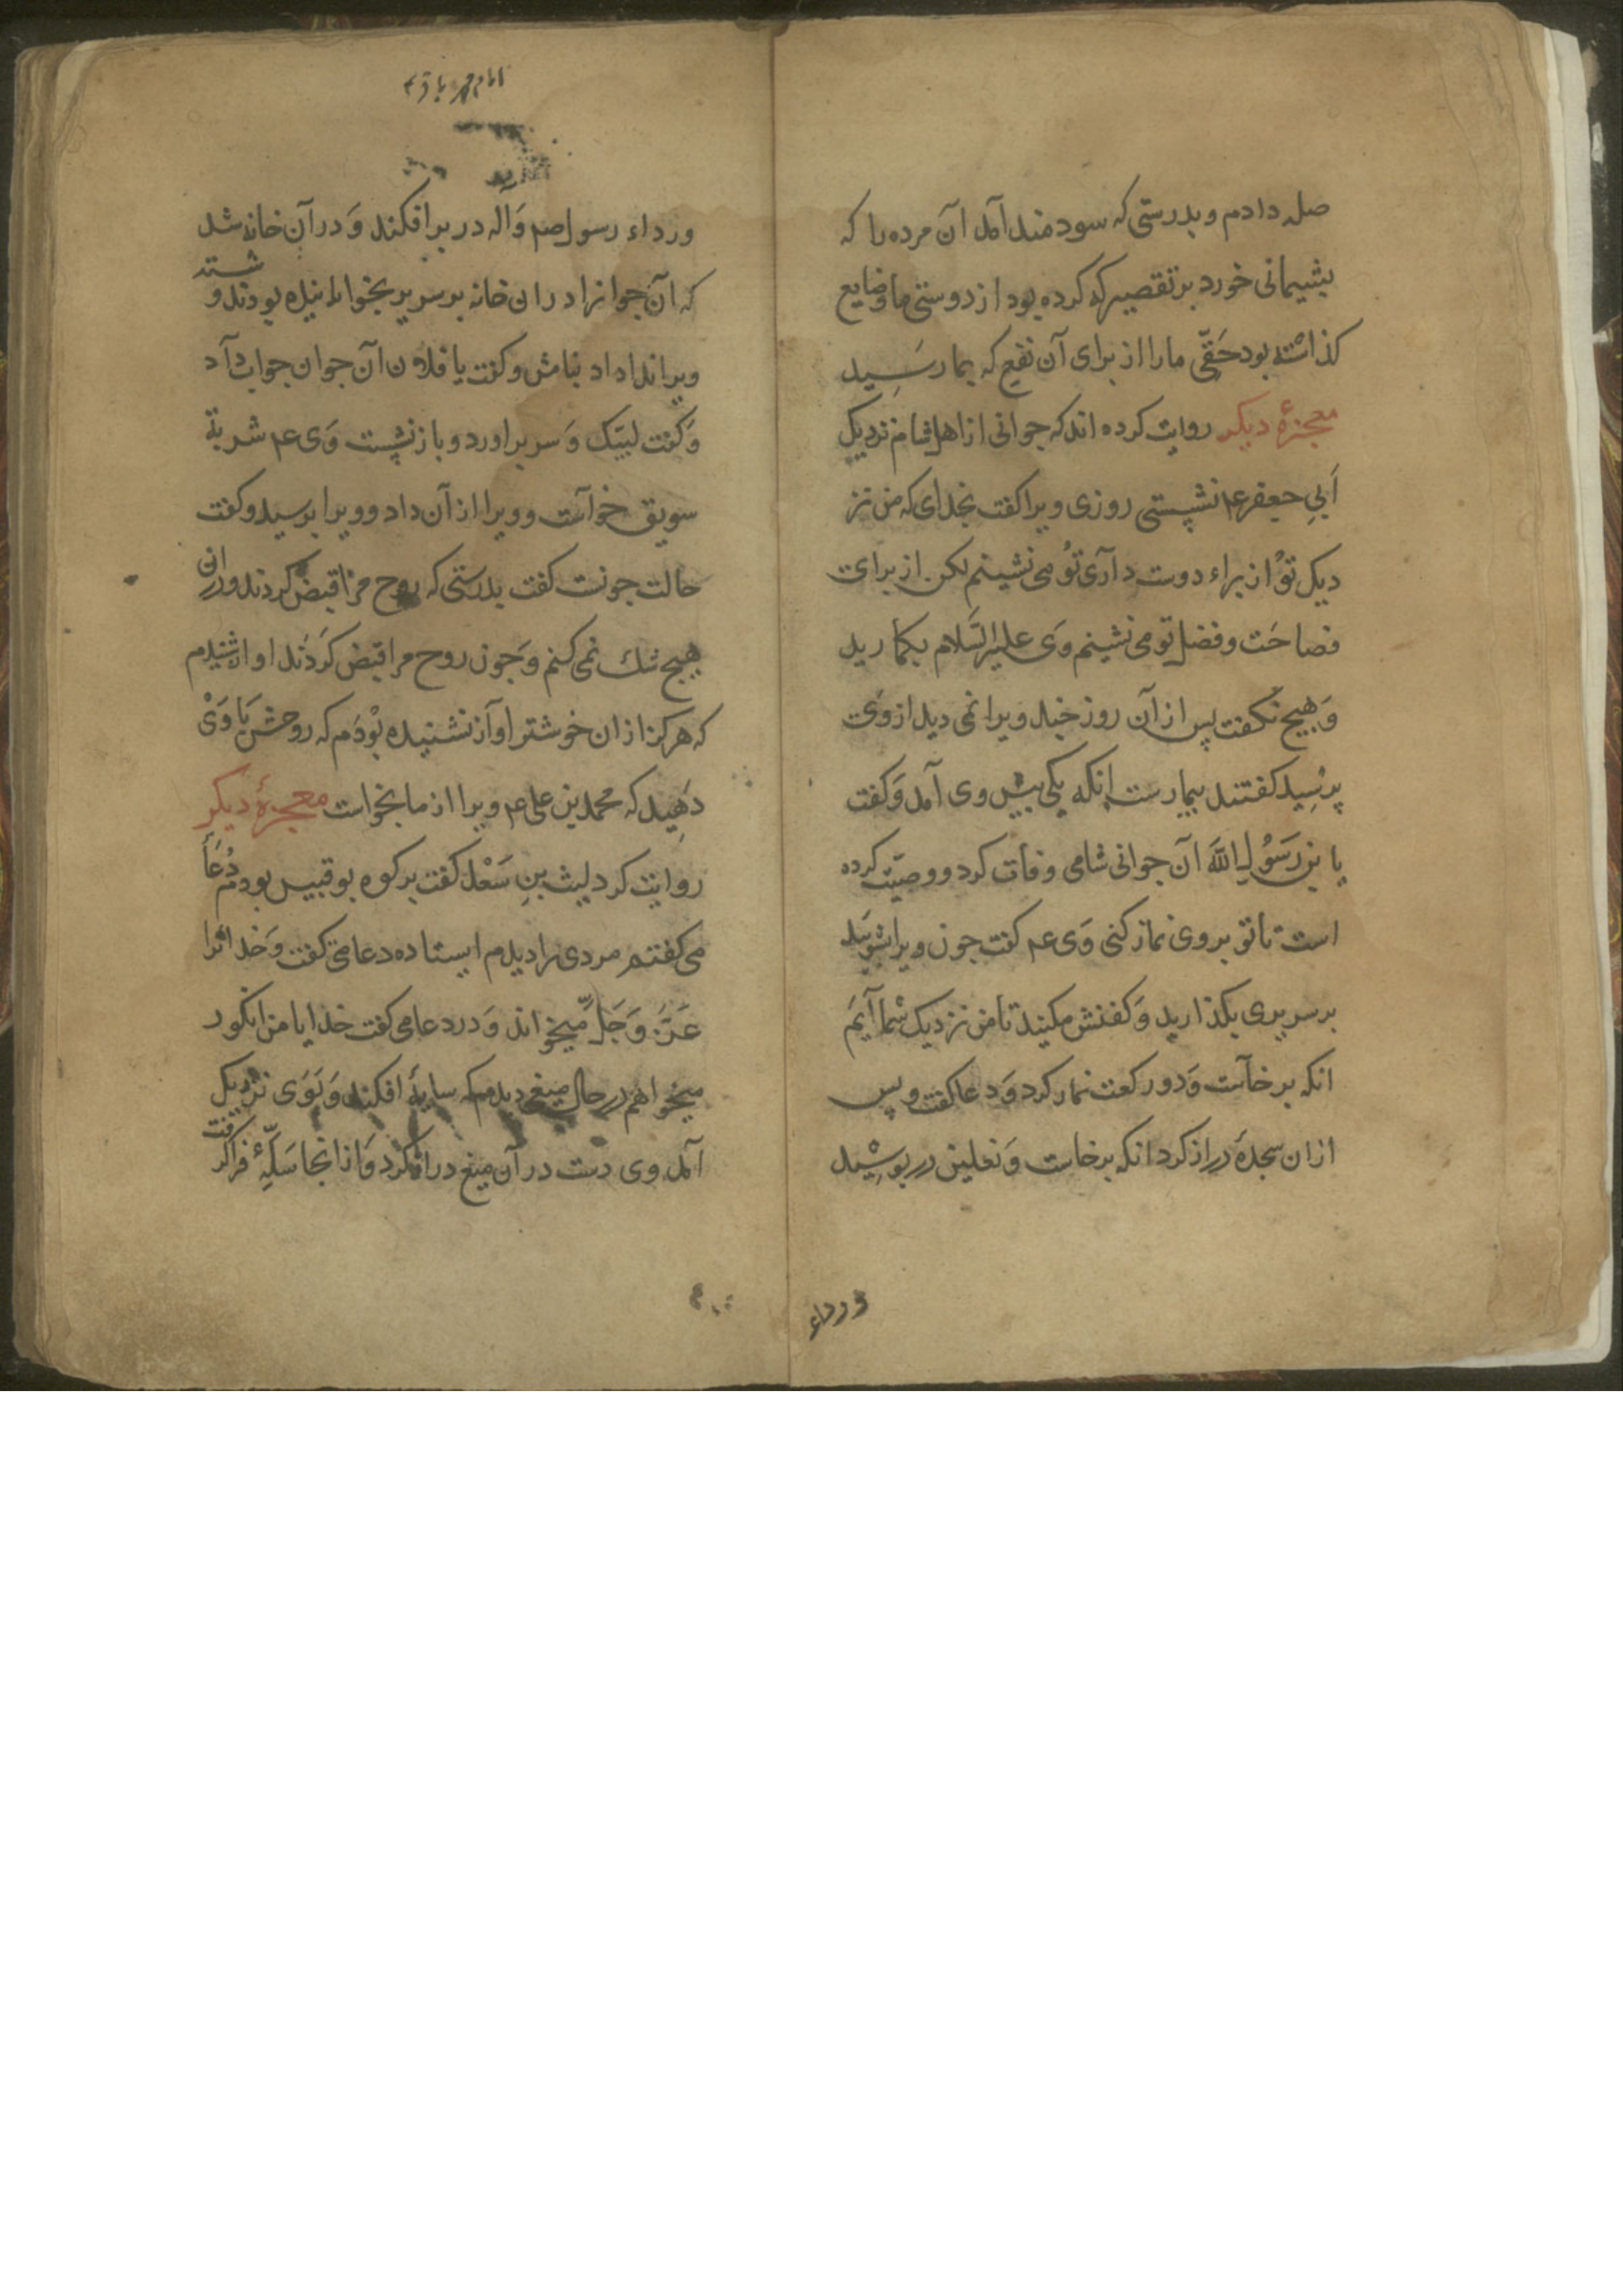 صله دادم و بدرستی که سودمند آمد آن مرده را که
بشیمانی خورد بر تقصیر که کرده بود از دوستی ما و ضایع
کذاشته بود حَقّی ما را از برای آن نفع که بما رسَید
معجزهٔ دیکر روایت کرده اند که جوانی از اهل شام نزدیک
اَبی جعفر ع نشستی روزی ویرا کفت بخدای که من نز
دیک توُ از براء دوست دآری توُ می نشینم لکن از برای
فصاحَت و فضل تو می نشینم وَی علیه السّلام بکمارید
وَ هیچ نکفت پس از آن روز چند ویرا نمی دید از وی
پرسِید کفتند بیمارست انکه یکی پیش وی آمد وَ کفت
یا بن رَسُولِ اللهَ آن جوانی شامی وفات کرد و وصیّت کرده
است تا تو بروی نماز کنی وَی ع کفت جون ویرا بشویَند
بر سریری بکذارید وَ کفنش مکنید تا من نزدیک شما آیَم
انکه برخآست وَ دو رکعت نماز کرد وَ دعا کفت و پس
ازان سجدهٔ دراز کرد انکه برخاست وَ نعلین در بوشِید
ورداء
امام محمد باقر ع
ورداء رسول صم وَآله در بر افکند وَ در آن خانه شد
که آن جوانرا دران خانه بر سریر بخوابانیده بودند و شسته
ویرا ندا داد بنامش و کفت یا فلان آن جوان جواب داد
وَ کفت لبیّک وَ سر براورد و باز نشست وَی ع شربة
سویق خوآست و ویرا از آن داد و ویرا برسید و کفت
حالت جونست کفت بدرستی که روح مرا قبض کردند و دران
هیچ شک نمی کنم وَ جون روح مرا قبض کَردَند اوازی شنیدم
که هرکز ازان خوشتر اوآز نشنیده بوْدَم که روحش بَا وَیْ
دَهِید که محمد بن علی ع ویرا از ما بخواست معجزهٔ دیکر
روایت کرد لیث بنِ سَعْد کفت بر کوه بوقبیس بودم دُعَا
می کفتم مردی را دیدم ایستاده دعا می کفت وَ خدا را
عَزَّ وَ جَلَّ میخواند وَ در دعا می کفت خدایا من انکور
میخواهم در حال میغی دیدم که سایهٔ افکند وَ بَوَی نزدیک
آمد وی دست در آن میغ دراز کرد وَ ازانجا سَلّهٔ فرا کرفت